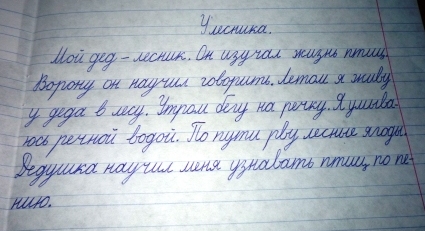 У лесника.
Мой дед – лесник. Он изучал жизнь птиц.
Ворону он научил говорить. Летом я живу
у деда в лесу. Утром бегу на речку. Я умыва-
юсь речной водой. По пути рву лесные ягоды.
Дедушка научил меня узнавать птиц по пе-
нию.